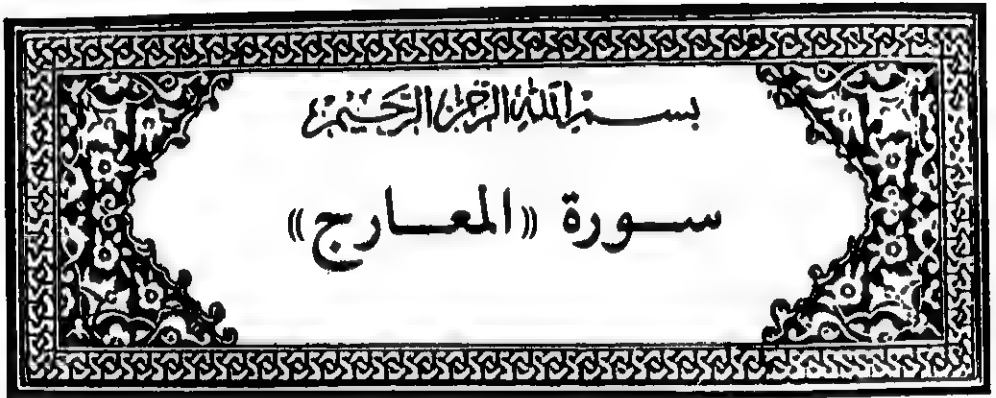 بسم الله الرحمن الرحيم
سورة «المعارج»